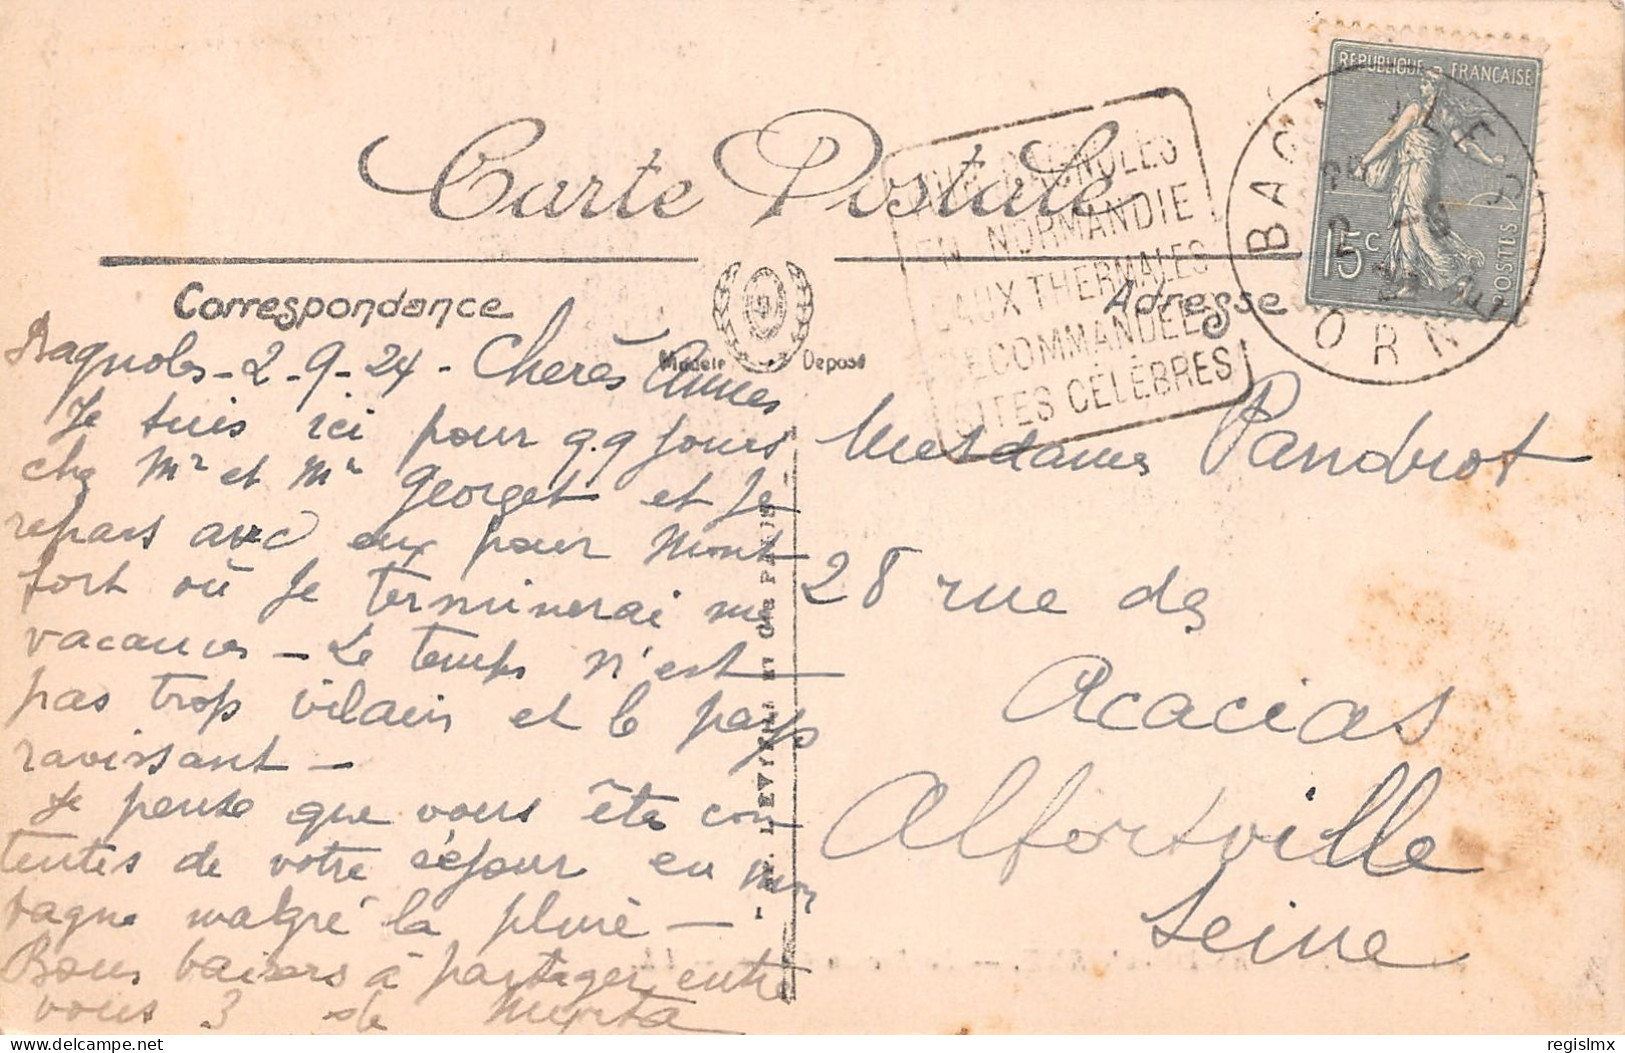 Carte Postale
Correspondance
Adresse
Modèle Déposé
REPUBLIQUE FRANÇAISE
15c
POSTES
BAGNOLES
ORNE
BAGNOLES
EN NORMANDIE
EAUX THERMALES
RECOMMANDÉES
SITES CÉLÈBRES
Bagnoles - 2 - 9 - 24 - Cherès Amies
Je suis ici pour q.q jours
chz Mr et Me Georget et Je
repars avec eux pour Mont
fort où Je terminerai mes
vacances - Le temps n'est
pas trop vilain et le pays
ravissant -
Je pense que vous êtes con
tentes de votre séjour en mon
tagne malgré la pluie -
Bons baisers à partager entre
vous 3 de
Mesdames Pandrot
28 rue des
Acacias
Alfortville
Seine
LEVY ET PARIS
delcampe.net
regislmx